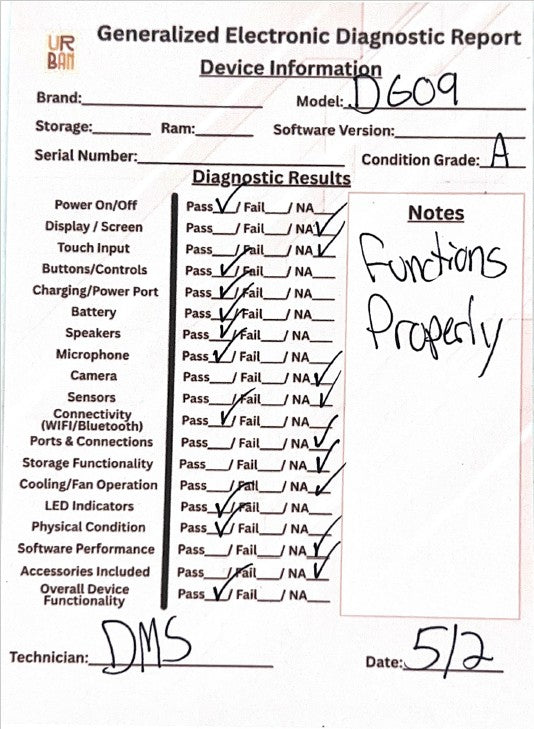 UR
BAN
Generalized Electronic Diagnostic Report
Device Information
Brand:
Model: DG09
Storage: Ram: Software Version:
Serial Number: Condition Grade: A
Diagnostic Results
Power On/Off Pass ✓ / Fail / NA
Display / Screen Pass / Fail / NA ✓
Touch Input Pass / Fail / NA ✓
Buttons/Controls Pass ✓ / Fail / NA
Charging/Power Port Pass ✓ / Fail / NA
Battery Pass ✓ / Fail / NA
Speakers Pass ✓ / Fail / NA
Microphone Pass ✓ / Fail / NA
Camera Pass / Fail / NA ✓
Sensors Pass / Fail / NA ✓
Connectivity
(WIFI/Bluetooth) Pass ✓ / Fail / NA
Ports & Connections Pass / Fail / NA ✓
Storage Functionality Pass / Fail / NA ✓
Cooling/Fan Operation Pass / Fail / NA ✓
LED Indicators Pass ✓ / Fail / NA
Physical Condition Pass ✓ / Fail / NA
Software Performance Pass / Fail / NA ✓
Accessories Included Pass / Fail / NA ✓
Overall Device
Functionality Pass ✓ / Fail / NA
Notes
Functions
Properly
Technician: DMS
Date: 5/2